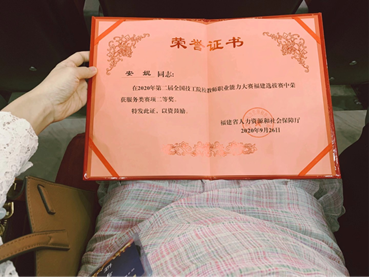 荣誉证书
安妮 同志:
在2020年第二届全国技工院校教师职业能力大赛福建选拔赛中荣
获服务类赛项二等奖。
特发此证,以资鼓励。
福建省人力资源和社会保障厅
2020年9月26日